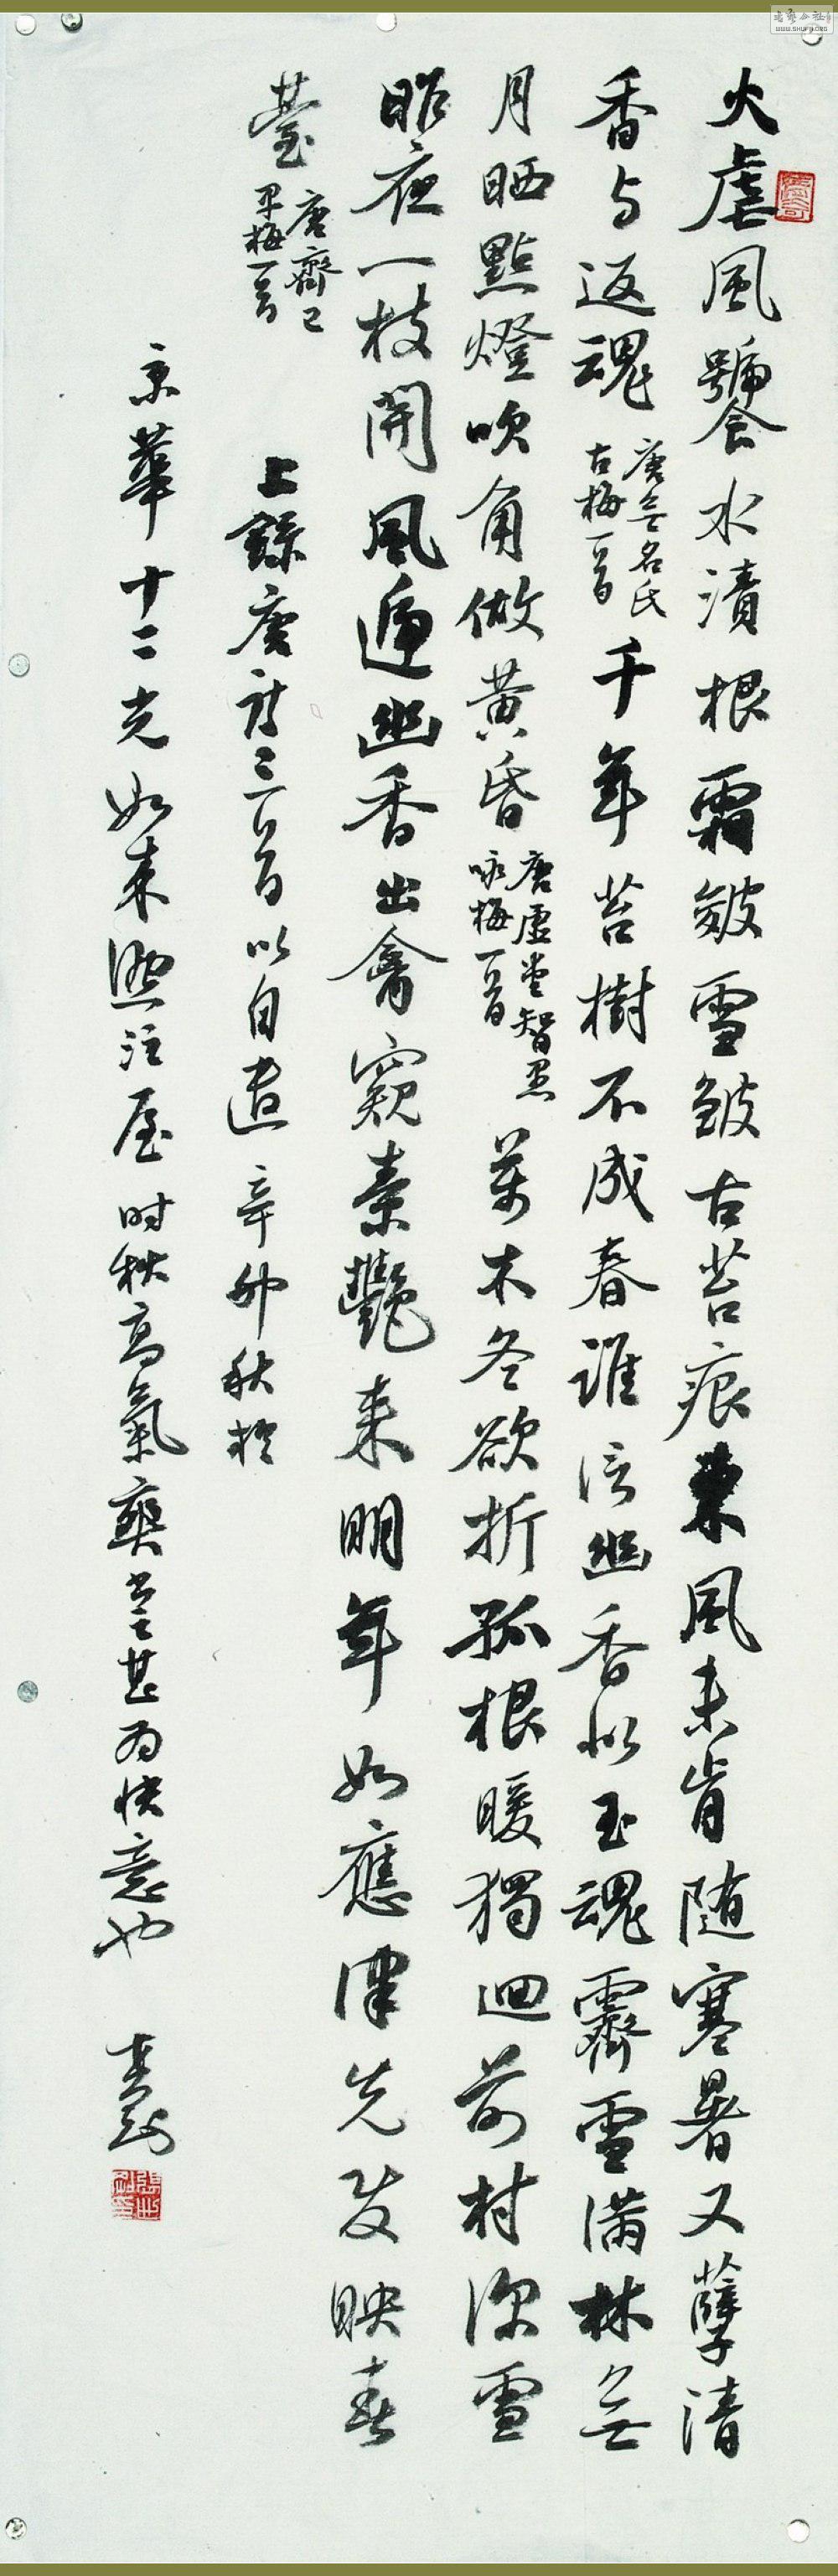 火虐風饕水漬根霜皴雪皴古苔痕東風未肯随寒暑又蘖清
香与返魂
唐無名氏
古梅一首
千年苔樹不成春誰信幽香似玉魂霽雪满林無
月晒點燈吹角做黄昏
唐虛堂智愚
咏梅一首
萬木冬欲折孤根暖獨迴前村深雪
昨夜一枝開風遞幽香出禽窺素艷来明年如應律先发映春
臺
唐齊己
早梅一首
上錄唐詩三百首以自遣辛卯秋於
京華十二光如来
屋时秋高氣爽書甚为快意也
WWW.SHUFJI.ORG